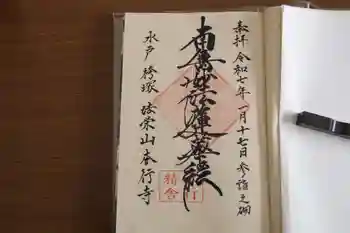 奉拝 令和七年一月十七日参詣之砌
南無妙法蓮華経
水戸 袴塚 法栄山本行寺
精舎